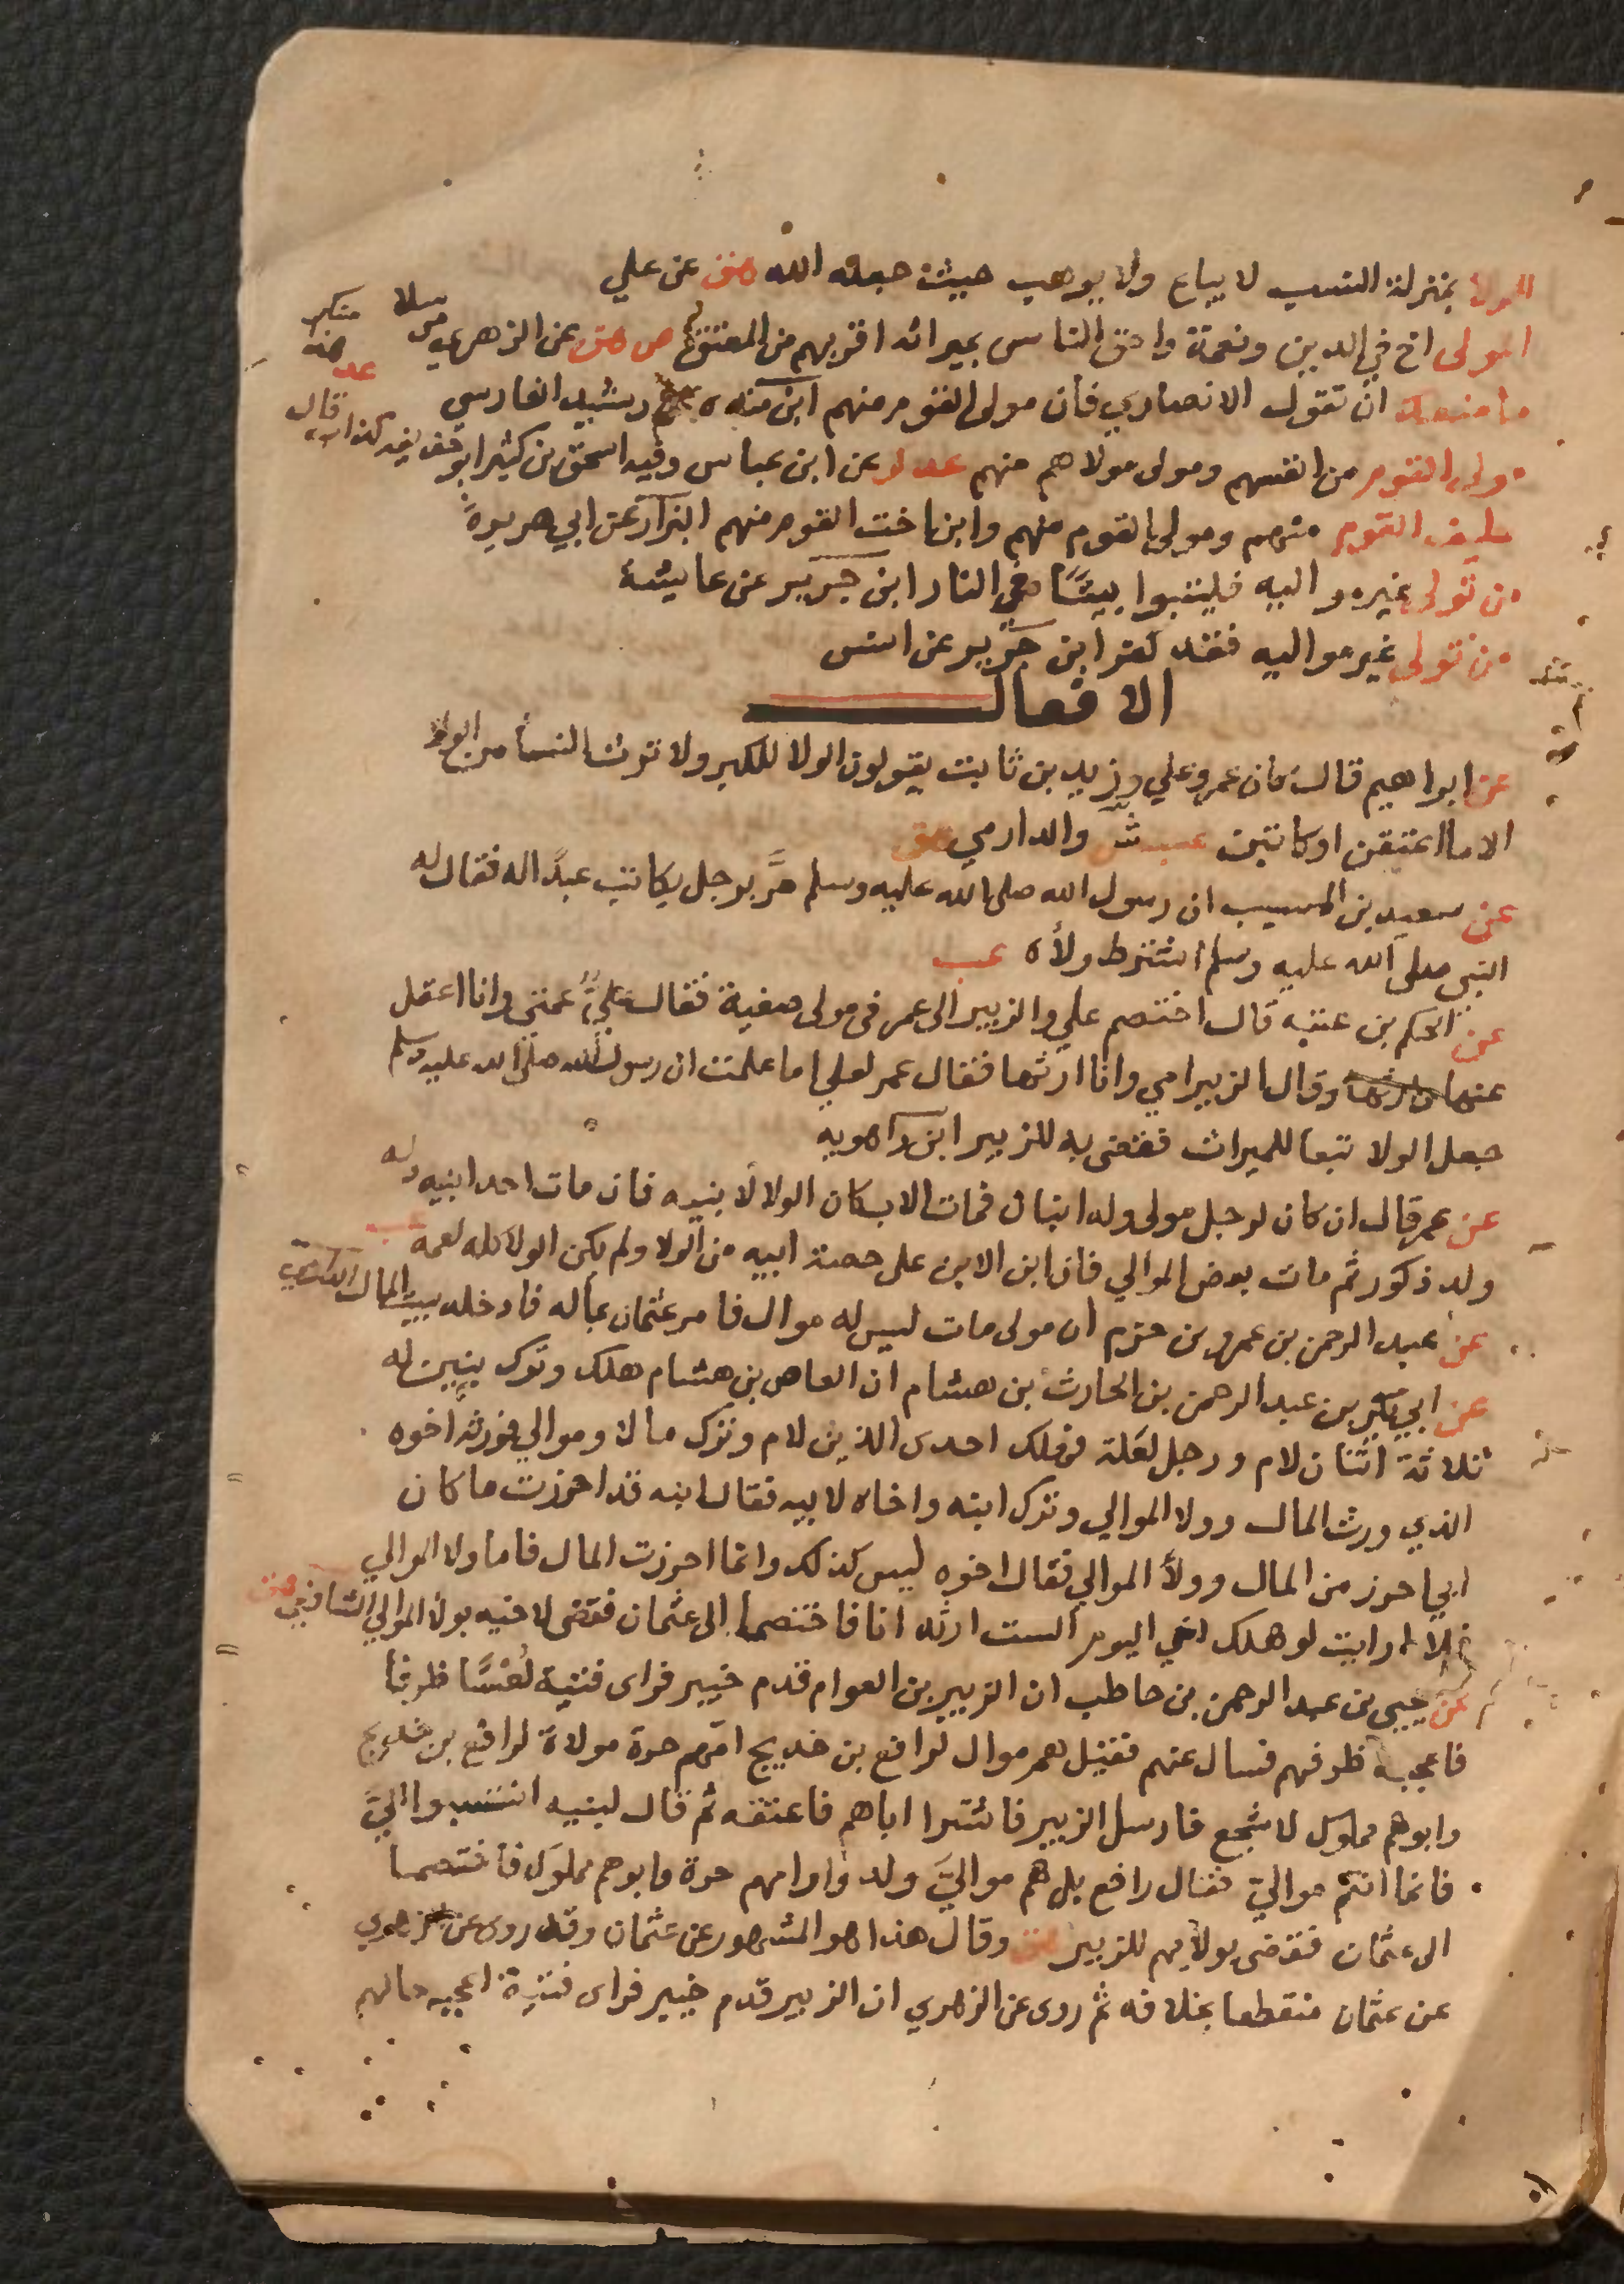 الولا بمنزلة النسب لا يباع ولا يوهب حيث جعله الله هق عن علي
المولى اخ في الدين ونعمة واحق الناس بميراثه اقربهم من المعتق ص هق عن الزهري مرسلا
ما منعك ان تقول الانصاري فان مولى القوم منهم ابن منده رشيد الفارسي
مولى القوم من انفسهم ومولى مولاهم منهم عد عن ابن عباس وفيه اسحق بن كثير ابو
حليف القوم منهم ومولى القوم منهم وابن اخت القوم منهم البزار عن ابي هريرة
من تولى غير مواليه فليتبوا بيتا في النار ابن جرير عن عايشة
من تولى غير مواليه فقد كفر ابن جرير عن انس
الافعال
عن ابراهيم قال كان عمر وعلي وزيد بن ثابت يقولون الولا للكبر ولا ترث النسا من الولا
الا ما اعتقن او كاتبن عب ش والدارمي هق
عن سعيد بن المسيب ان رسول الله صلى الله عليه وسلم مر برجل يكاتب عبدا له فقال له
النبي صلى الله عليه وسلم اشترط ولاه عب
عن الحكم بن عتيبه قال اختصم علي والزبير الى عمر في مولى صفية فقال علي عمتي وانا اعقل
عنها وقال الزبير امي وانا ارثها فقال عمر لعلي اما علمت ان رسول الله صلى الله عليه وسلم
جعل الولا تبعا للميراث فقضى به للزبير ابن راهويه
عن عمر قال ان كان لرجل مولى وله ابنان فمات الاب كان الولا لابنيه فان مات احد ابنيه وله
ولد ذكور ثم مات بعض الموالي فان ابن الابن على حصة ابيه من الولا ولم يكن الولا كله لعمه عب
عن عبد الرحمن بن عمرو بن حزم ان مولى مات ليس له موال فامر عثمان بماله فادخله بيت المال
عن ابي بكر بن عبد الرحمن بن الحارث بن هشام ان العاص بن هشام هلك وترك بنين له
ثلاثة اثنان لام ورجل لعلة فهلك احدى الذين لام وترك مالا وموالي فورثه اخوه
الذي ورث المال وولا الموالي وترك ابنه واخاه لابيه فقال ابنه قد احرزت ما كان
ابي احرز من المال وولا الموالي فقال اخوه ليس كذلك وانما احرزت المال فاما ولا الموالي
فلا ارايت لو هلك اخي اليوم الست ارثه انا فاختصما الى عثمان فقضى لاخيه بولا الموالي الشافعي هق
عن يحيى بن عبد الرحمن بن حاطب ان الزبير بن العوام قدم خيبر فراى فتية لعسا ظرفا
فاعجبه ظرفهم فسال عنهم فقيل هم موال لرافع بن خديج امهم حرة مولاة لرافع بن خديج
وابوهم مملوك لاشجع فارسل الزبير فاشترا اباهم فاعتقه ثم قال لبنيه انتسبوا الي
فانما انتم موالي فقال رافع بل هم موالي ولدوا وامهم حرة وابوهم مملوك فاختصما
الى عثمان فقضى بولايهم للزبير هق وقال هذا هو المشهور عن عثمان وقد روى عن الزهري
عن عثمان منقطعا بخلافه ثم روى عن الزهري ان الزبير قدم خيبر فراى فتية اعجبه حالهم